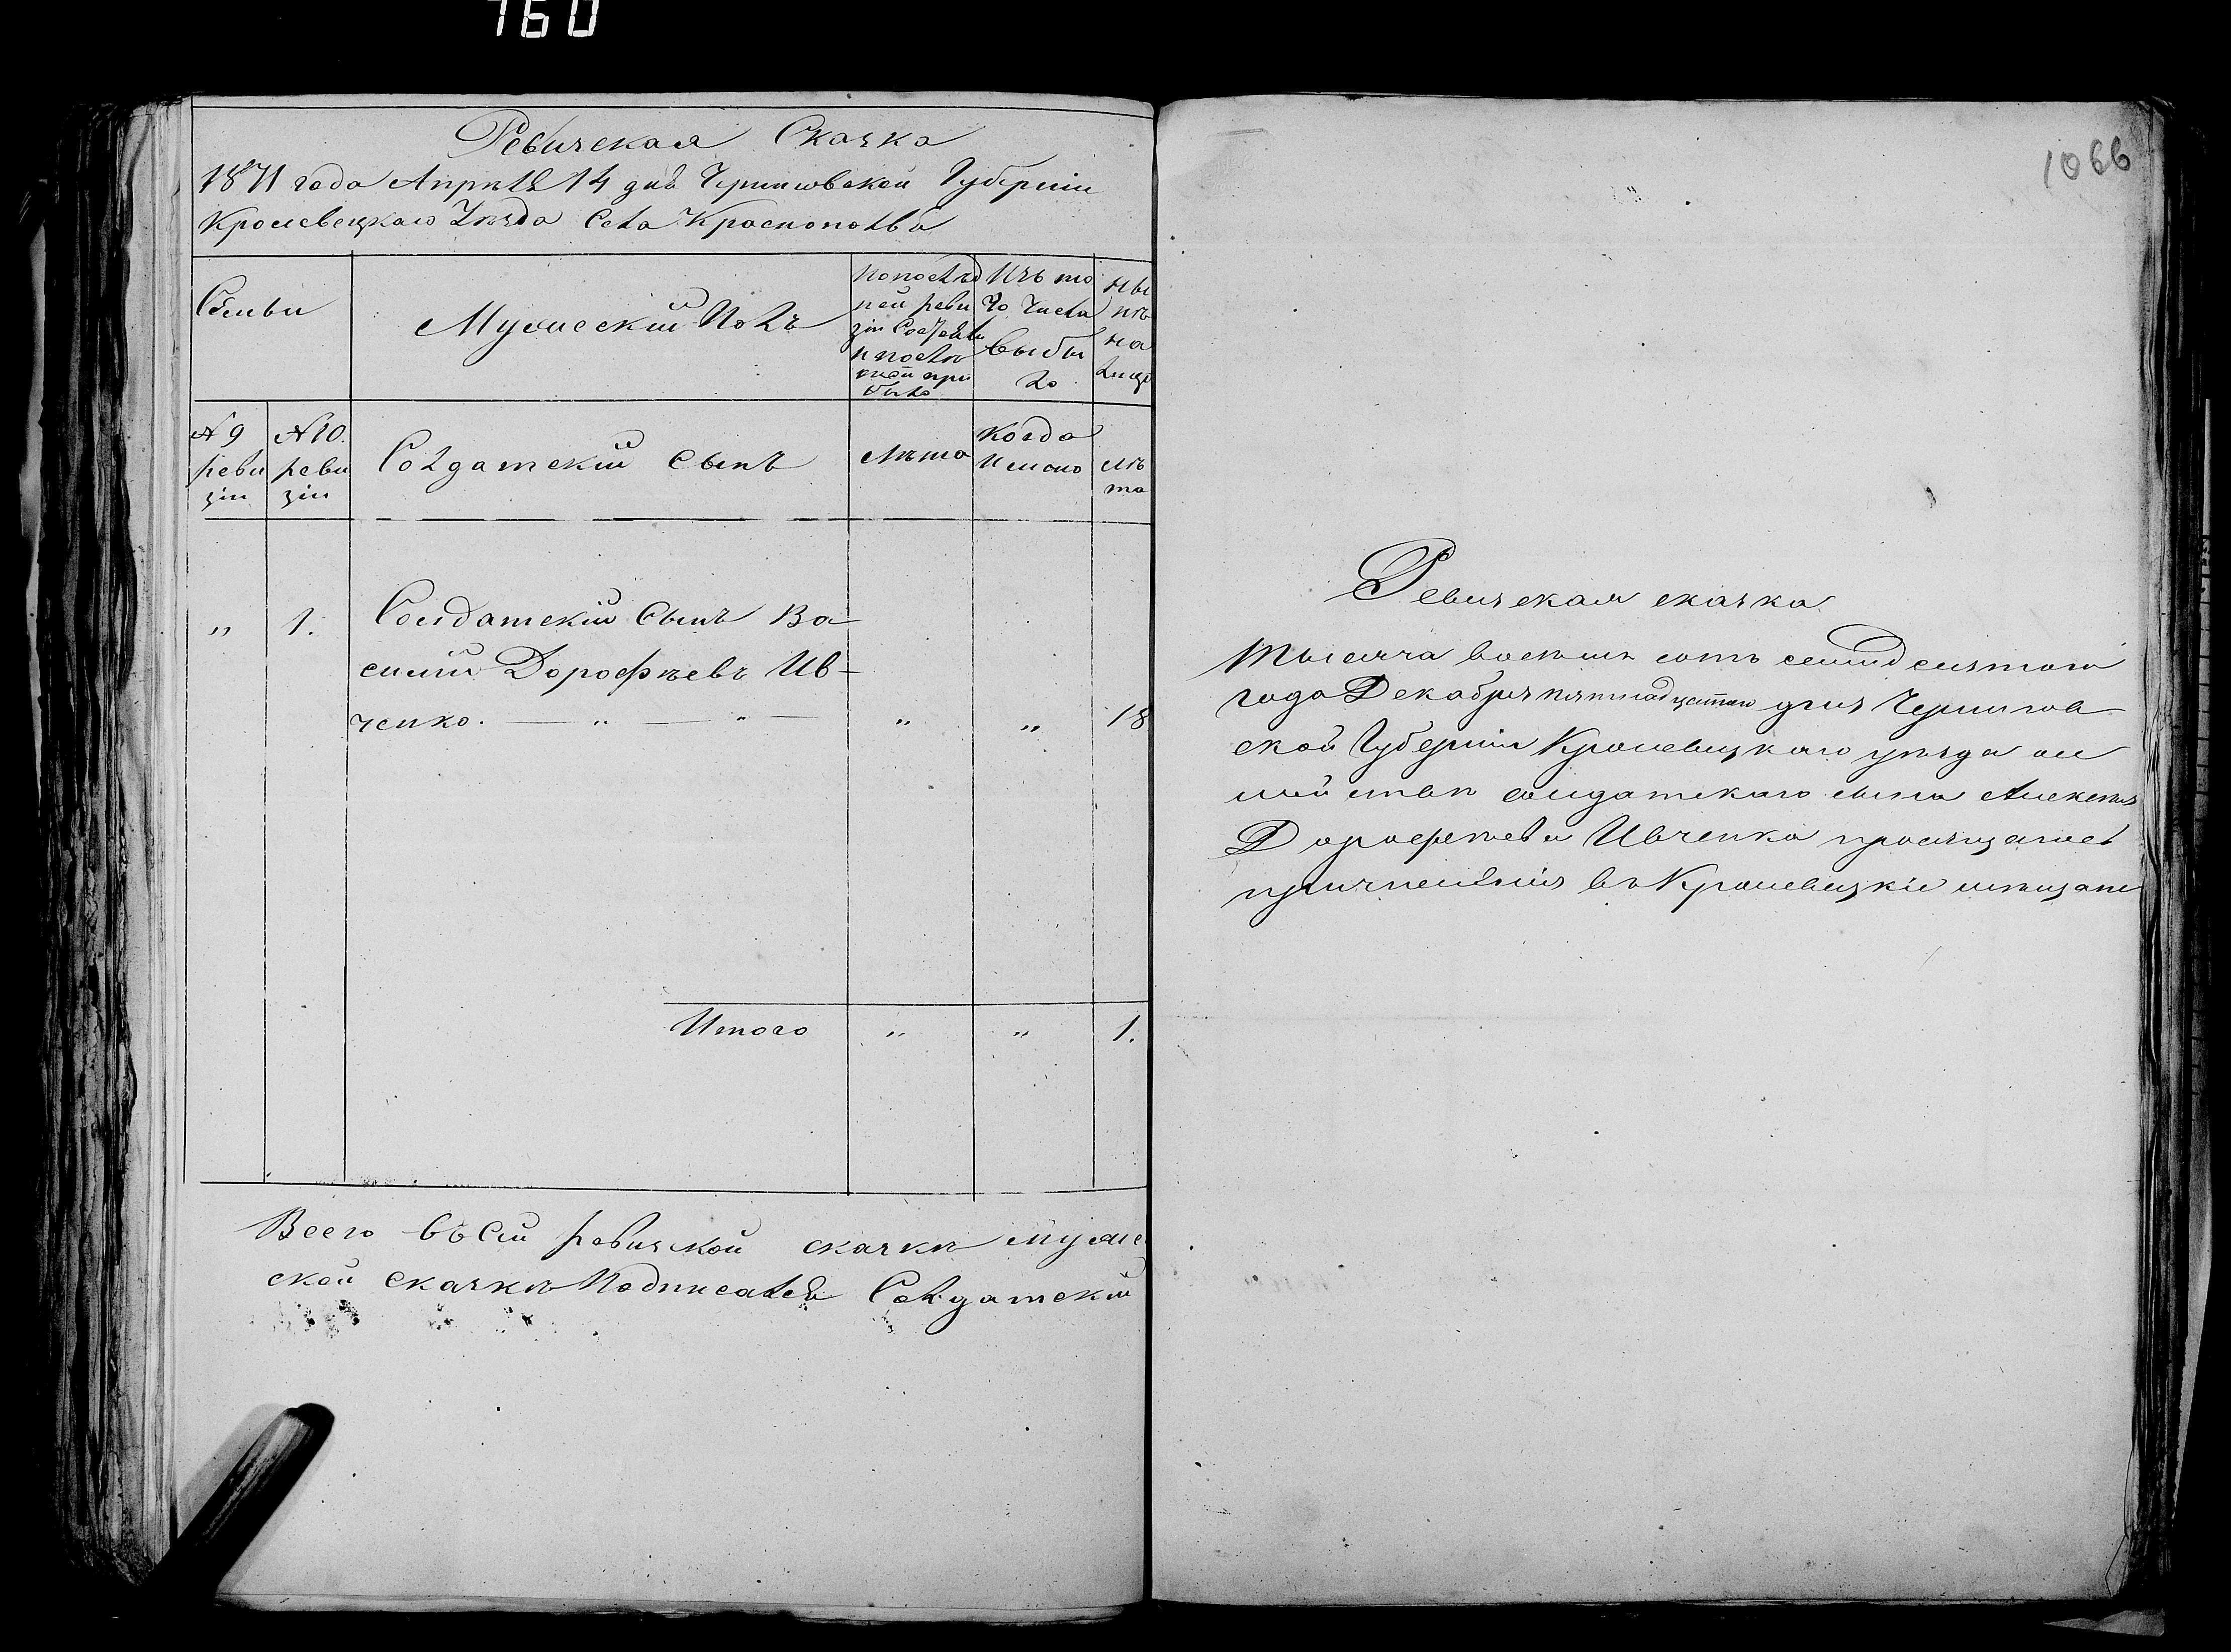 760
Ревизская Сказка
1871 года Апрѣля 14 дня Черниговской Губерніи
Кролевецкаго Уѣзда Села Краснополья
Семьи
Мужескій Полъ
По послѣд
ней реви
зіи Состояло
и послѣ
оной при
было
Изъ то
го Числа
выбы
ло
Ны
нѣ
на
лицо
№ 9
реви
зіи
№ 10.
реви
зіи
Солдатскій Сынъ
Лѣта
Когда
Имено
Лѣ
та
„ 1. Солдатскій Сынъ Ва
силій Дорофѣевъ Ив-
ченко. — „ — „ — „ „ 18
Итого „ „ 1.
Всего въ Сей ревизской сказкѣ муже
ской сказкѣ Подписался Солдатскій
1066
Ревизская сказка
Тысяча восемь сотъ семидесятого
года Декабря пятнадцатаго дня Чернигов
ской Губерніи Кролевецкаго уѣзда о се
мействѣ солдатскаго сына Алексея
Дорофеева Ивченка просящагося
причисленія въ Кролевецкіе мѣщане